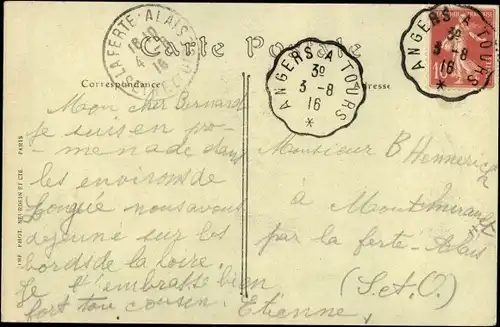 Carte Postale
Correspondance
Adresse
LA FERTE-ALAIS
18 10
4 -8
16
ANGERS A TOURS
3°
3 -8
16
*
ANGERS A TOURS
3°
3 -8
16
*
10
Mon cher Bernard
Je suis en pro-
menade dans
les environs de
Longué nous avons
déjeuné sur les
bords de la Loire.
Je t'embrasse bien
fort ton cousin. Etienne.
Monsieur B Hennerich
à Montmirault
par la ferte-Alais
(S.et.O.)
IMP. PHOT. NEURDEIN ET CIE. PARIS